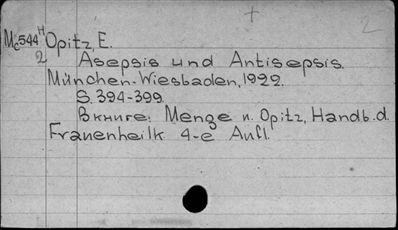 Mc544H Opitz, E.
2 Asepsis und Antisepsis.
München-Wiesbaden, 1922.
S. 394-399.
Вкниге: Menge и. Opitz, Handb. d.
Frauenheilk 4-e Aufl.